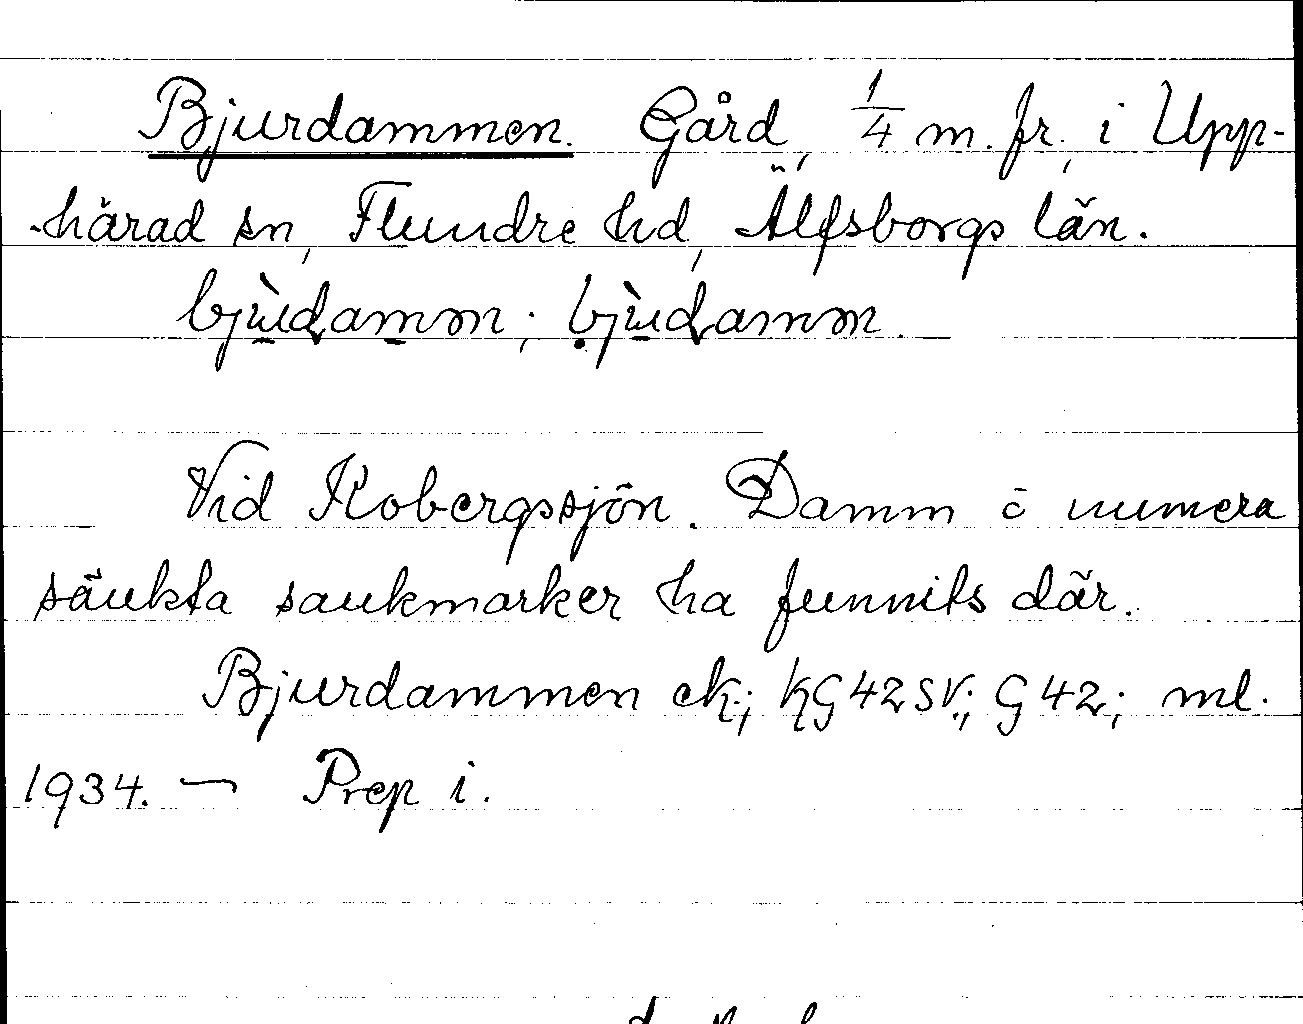 Bjurdammen. Gård, 1/4 m. fr., i Upp-
härad sn, Flundre hd, Älfsborgs län.
bju̱̇̀damm; bju̱̇̀damm.
Vid Kobergssjön. Damm o numera
sänkta sankmarker ha funnits där.
Bjurdammen ek; KG 42 SV; G 42; ml.
1934. — Prep i.